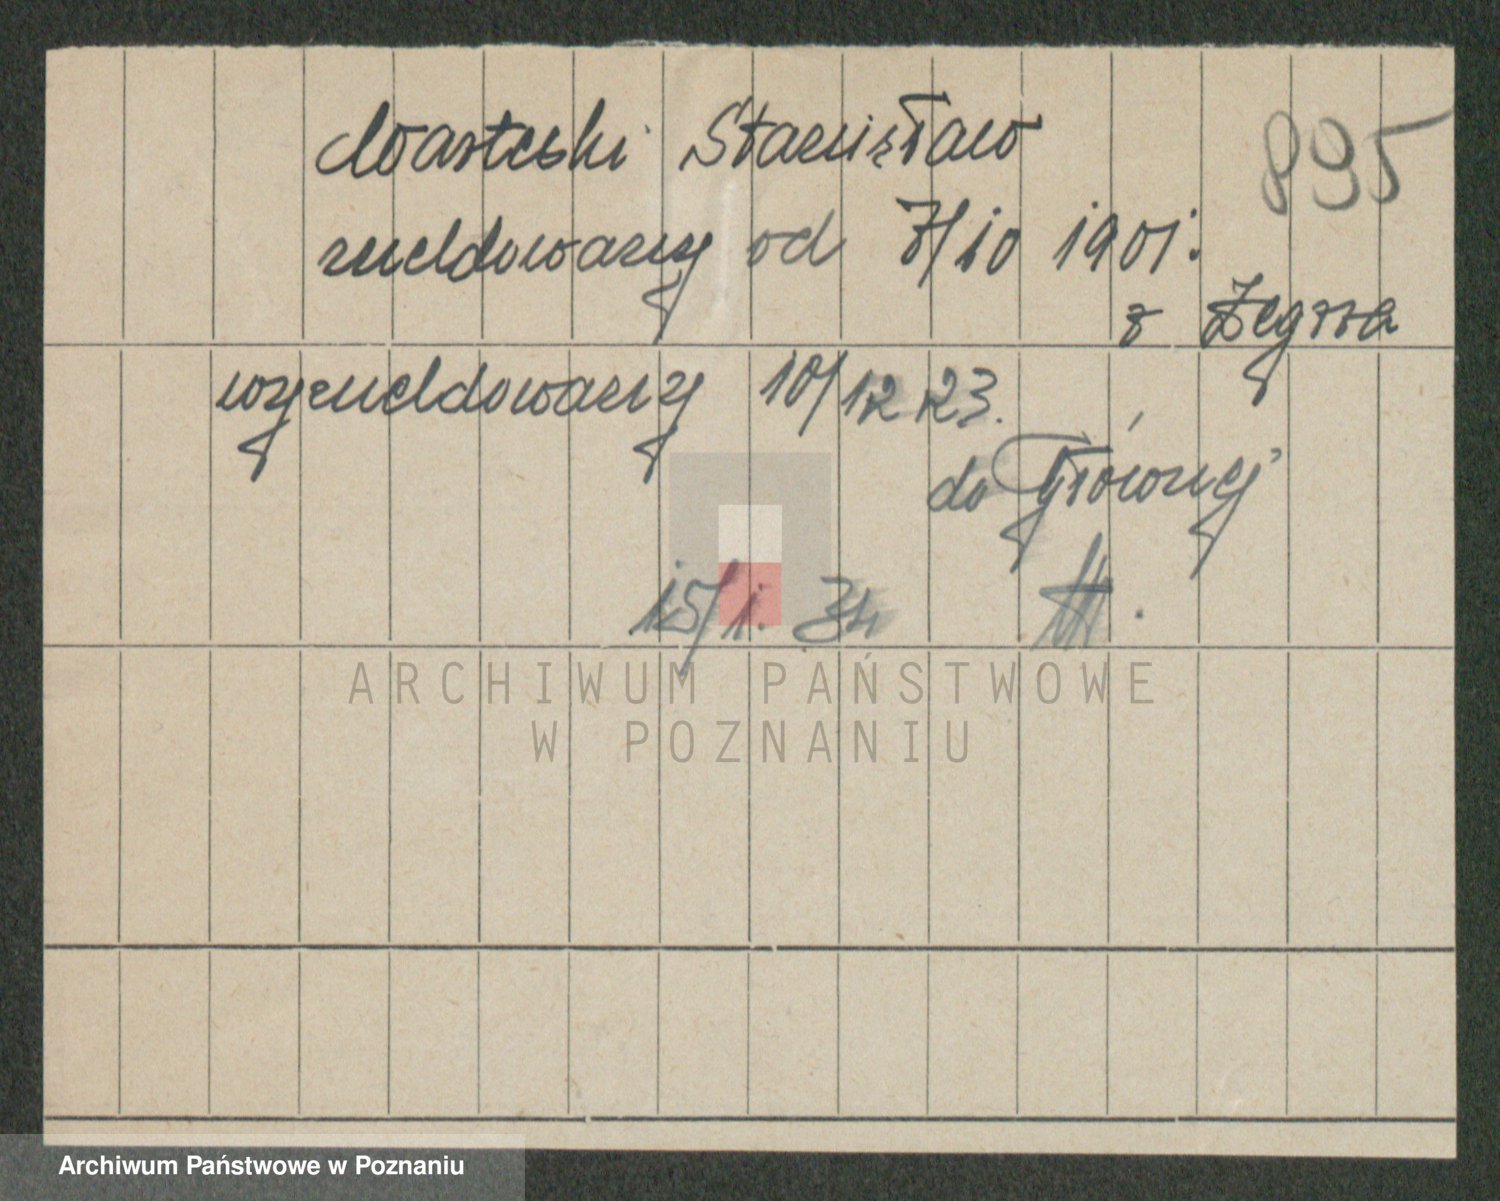 Warteski Stanisław
895
meldowany od 7/10 1901.
z Żegrza
wymeldowany 10/12 23.
do Głównej
15/1. 34
ARCHIWUM PAŃSTWOWE
W POZNANIU
Archiwum Państwowe w Poznaniu